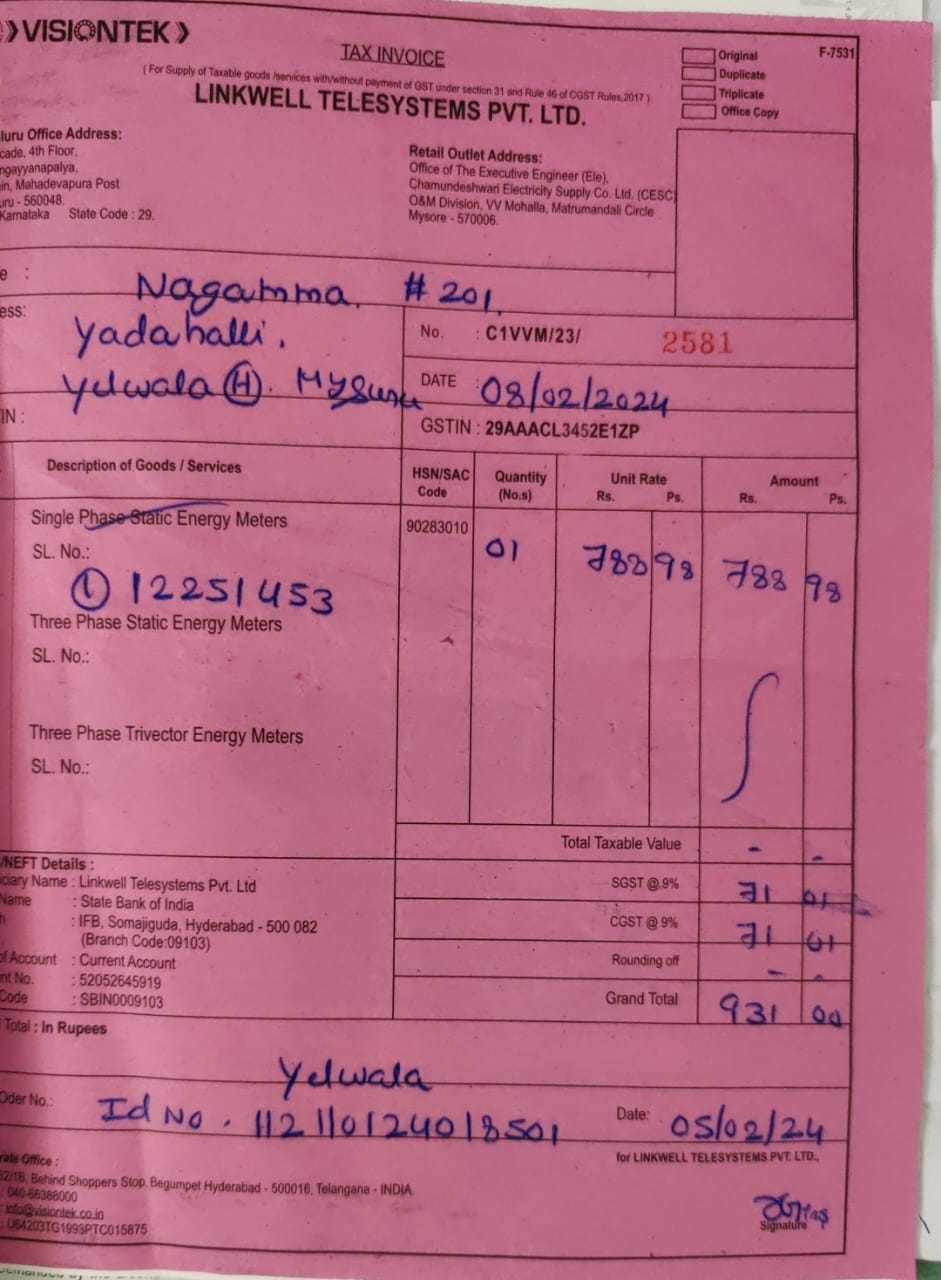 VISIONTEK
TAX INVOICE
( For Supply of Taxable goods /services with/without payment of GST under section 31 and Rule 46 of CGST Rules,2017 )
LINKWELL TELESYSTEMS PVT. LTD.
Original
Duplicate
Triplicate
Office Copy
F-7531
luru Office Address:
cade, 4th Floor,
ngayyanapalya,
in, Mahadevapura Post
uru - 560048.
Karnataka State Code : 29.
Retail Outlet Address:
Office of The Executive Engineer (Ele),
Chamundeshwari Electricity Supply Co. Ltd. (CESC)
O&M Division, VV Mohalla, Matrumandali Circle
Mysore - 570006.
e : Nagamma. # 201,
ess: Yadahalli,
Yelwala (H). Mysuru
IN :
No. : C1VVM/23/ 2581
DATE : 08/02/2024
GSTIN : 29AAACL3452E1ZP
Description of Goods / Services HSN/SAC Code Quantity (No.s) Unit Rate Rs. Ps. Amount Rs. Ps.
Single Phase Static Energy Meters 90283010 01 788 98 788 98
SL. No.:
① 12251453
Three Phase Static Energy Meters
SL. No.:
Three Phase Trivector Energy Meters
SL. No.:
Total Taxable Value - -
SGST @ 9% 71 01
CGST @ 9% 71 01
Rounding off - -
Grand Total 931 00
/NEFT Details :
ciary Name : Linkwell Telesystems Pvt. Ltd
Name : State Bank of India
h : IFB, Somajiguda, Hyderabad - 500 082
(Branch Code:09103)
of Account : Current Account
nt No. : 52052645919
Code : SBIN0009103
Total : In Rupees
Yelwala
Oder No.: Id No. 112110124018501 Date: 05/02/24
for LINKWELL TELESYSTEMS PVT. LTD.,
rate Office :
62/1B, Behind Shoppers Stop, Begumpet Hyderabad - 500016, Telangana - INDIA
: 040-66388000
: info@visiontek.co.in
: U64203TG1993PTC015875
Signature